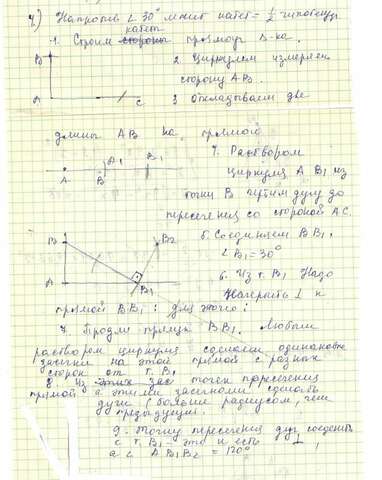 4) Напротив ∠ 30° лежит катет = 1/2 гипотенузы
катет
1. Строим стороны прямоуг Δ-ка.
B
2. Циркулем измеряем
сторону AB.
A C
3. Откладываем две
длины AB на прямой
B B1 B1
A
4. Раствором
циркуля A B1 из
точки B путем дугу до
пересечения со стороной AC.
B B2
5. Соединяем BB1.
∠B1 = 30°
A
B1
6. Из т. B1 Надо
начертить ⊥ к
прямой BB1: Для этого:
7. Продля прямую BB1. Любым
раствором циркуля сделаем одинаковые
засечки на этой прямой с разных
сторон от т. B1
8. Из этих зас точек пересечения
прямой с этими засечками сделать
дуги (больше радиусом, чем
предыдущие.
9. Точку пересечения дуг соединить
с т. B1 - это и есть ⊥,
а ∠ A B1 B2 = 120°